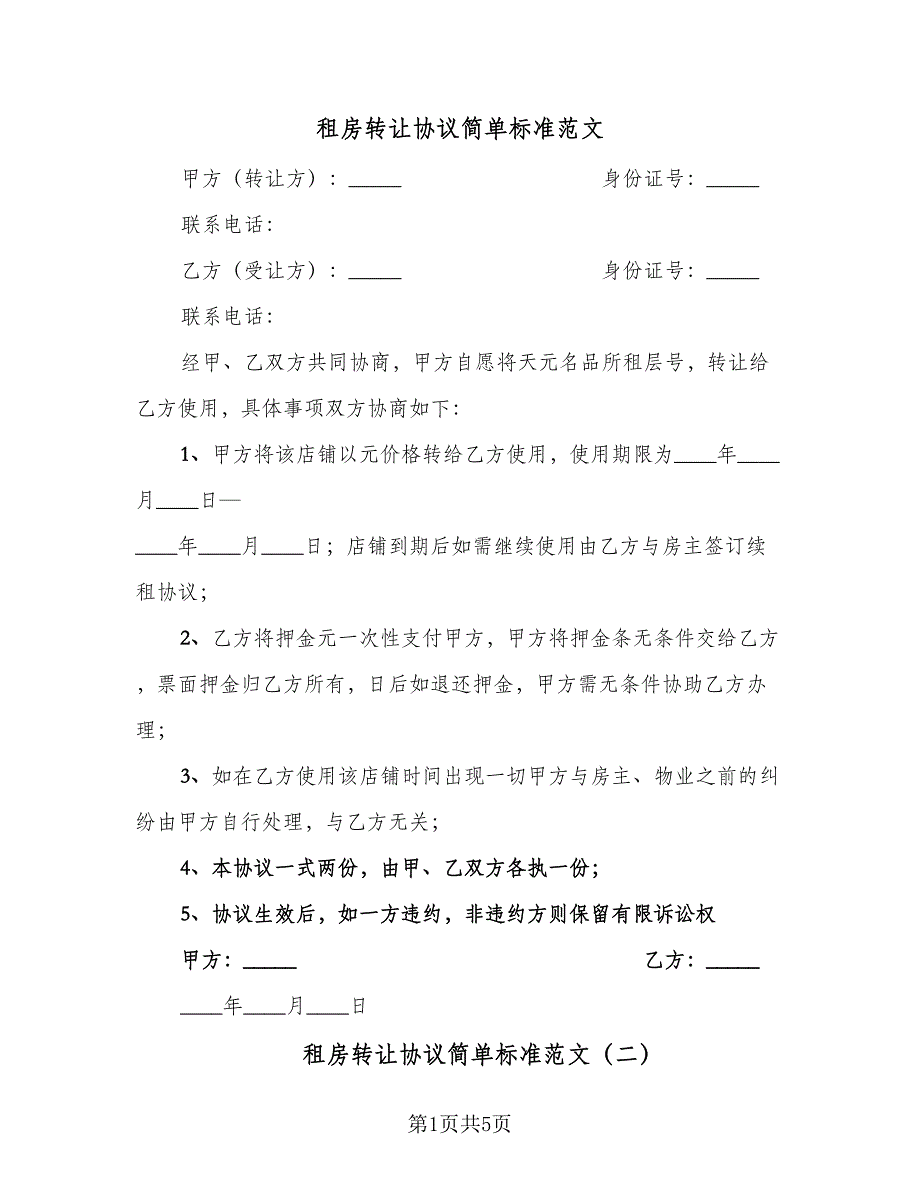 租房转让协议简单标准范文
甲方（转让方）：_____ 身份证号：_____
联系电话：
乙方（受让方）：_____ 身份证号：_____
联系电话：
经甲、乙双方共同协商，甲方自愿将天元名品所租层号，转让给
乙方使用，具体事项双方协商如下：
1、甲方将该店铺以元价格转给乙方使用，使用期限为____年____
月____日—
____年____月____日；店铺到期后如需继续使用由乙方与房主签订续
租协议；
2、乙方将押金元一次性支付甲方，甲方将押金条无条件交给乙方
，票面押金归乙方所有，日后如退还押金，甲方需无条件协助乙方办
理；
3、如在乙方使用该店铺时间出现一切甲方与房主、物业之前的纠
纷由甲方自行处理，与乙方无关；
4、本协议一式两份，由甲、乙双方各执一份；
5、协议生效后，如一方违约，非违约方则保留有限诉讼权
甲方：_____ 乙方：_____
____年____月____日
租房转让协议简单标准范文（二）
第1页共5页